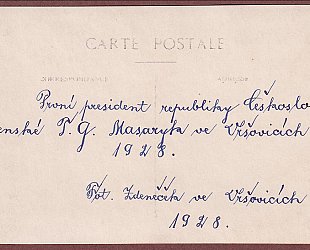 CARTE POSTALE
CORRESPONDANCE ADRESSE
První president republiky Českoslo
enské T. G. Masaryk ve Vršovicích
1928.
Fot. Zdeněček ve Vršovicích
1928.